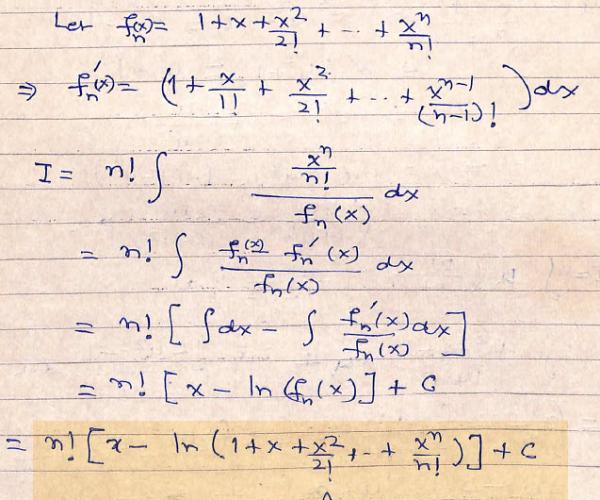 Let fₙ(x) = 1 + x + x²/2! + ... + xⁿ/n!
⇒ fₙ'(x) = (1 + x/1! + x²/2! + ... + xⁿ⁻¹/(n-1)!) dx
I = n! ∫ (xⁿ/n!)/(fₙ(x)) dx
= n! ∫ (fₙ(x) fₙ'(x))/(fₙ(x)) dx
= n! [∫ dx - ∫ fₙ'(x)dx/fₙ(x)]
= n! [x - ln (fₙ(x)] + C
= n! [x - ln (1 + x + x²/2! + .. + xⁿ/n!)] + C